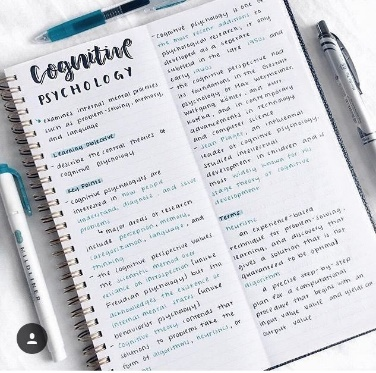 Cognitive
PSYCHOLOGY
examines internal mental processes
such as problem-solving, memory,
and language
Learning Objective
- describe the central theories of
cognitive psychology
Key Points
- cognitive psychologists are
interested in how people
understand, diagnose, and solve
major areas of research
include perception, memory,
categorization, language, and
thinking
- the cognitive perspective values
the scientific method over
reliance on introspection (unlike
Freudian psychology) but still
acknowledges the existence of
internal mental states (unlike
behaviourist psychology)
- Cognitive theory contends that
solutions to problems take the
form of algorithms, heuristics, or
cognitive psychology is one of
the most recent additions to
psychological research, only
developed as a separate
in the late 1950s and
early
- the cognitive perspective had
foundations in the Gestalt
psychology of Max Wertheimer,
Wolfgang Köhler, and
and in contemporary
advancements in technology
and computer science
- Jean Piaget, an influential
leader of cognitive psychology,
studied
development in children and is
most widely known for his
stage theory of cognitive
development
Terms
heuristic
an experience-based
technique for problem-solving,
learning, and discovery that
gives a solution that is not
guaranteed to be optimal
algorithm
a precise step-by-step
plan for a computational
procedure that begins with an
input value and yields an
output value
MILDLINER